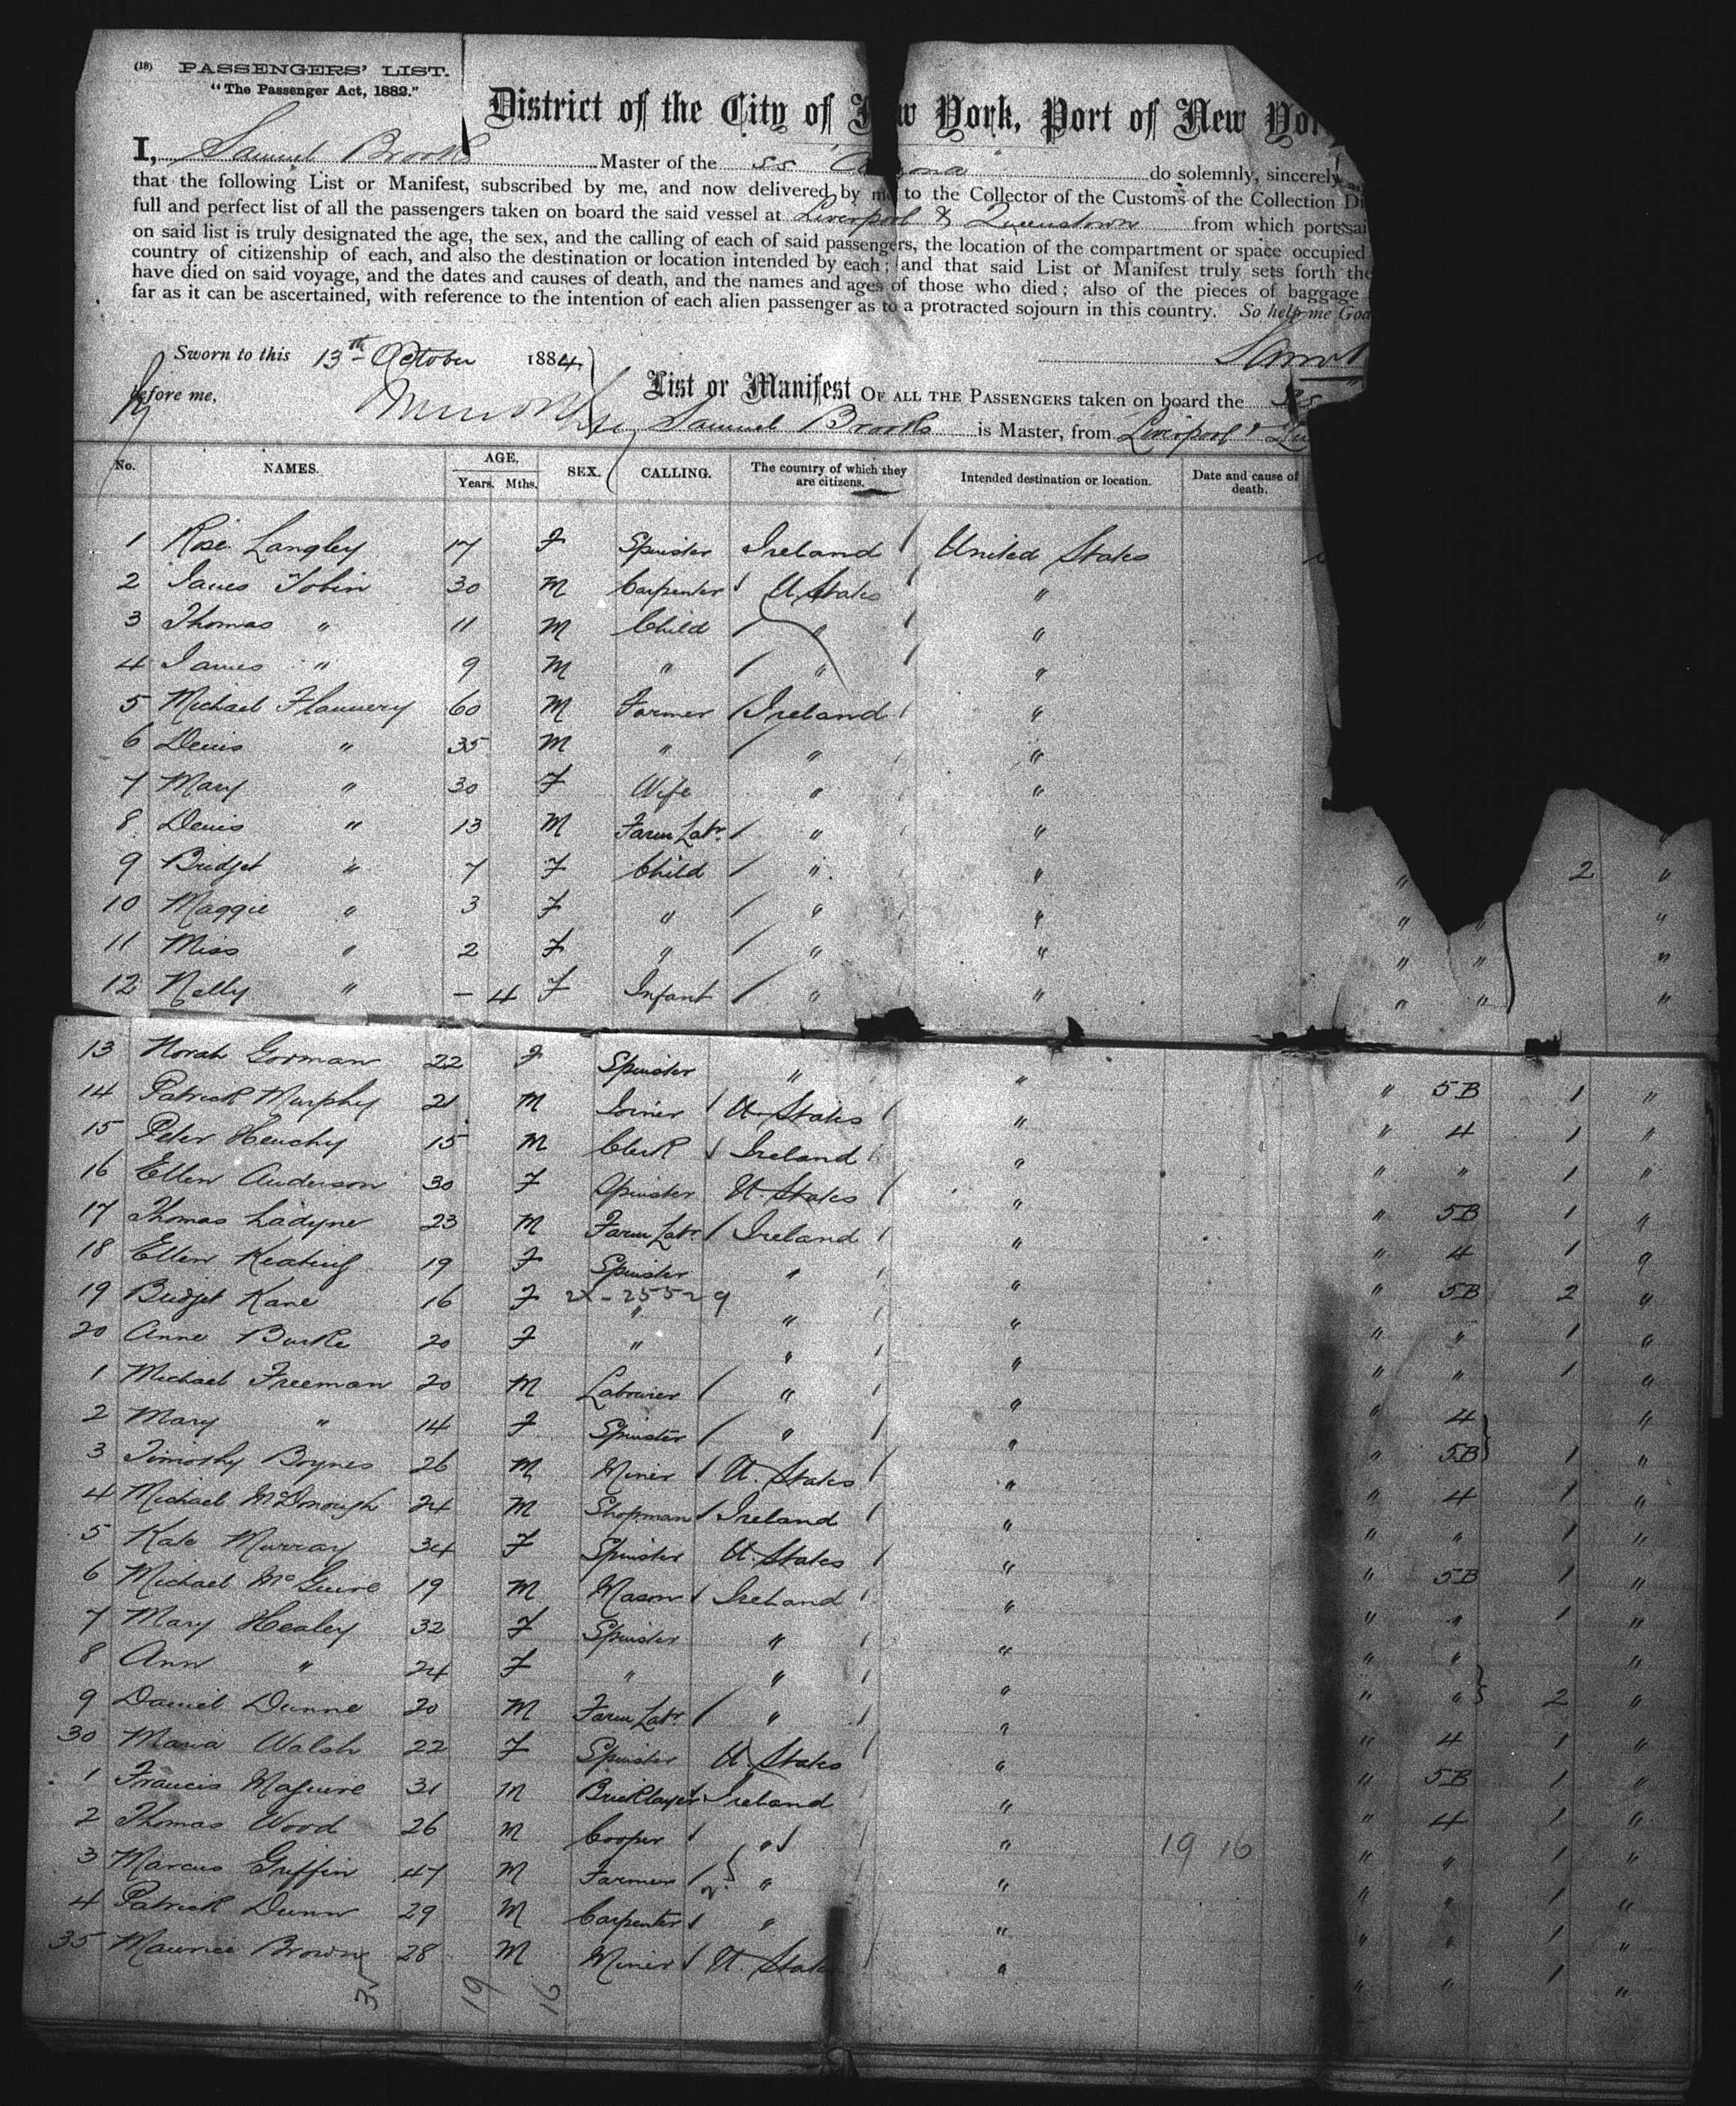 (18) PASSENGERS' LIST.
"The Passenger Act, 1882."
District of the City of N w York, Port of New Yor
I, Samuel Brooks Master of the SS do solemnly, sincerely
that the following List or Manifest, subscribed by me, and now delivered by me to the Collector of the Customs of the Collection Di
full and perfect list of all the passengers taken on board the said vessel at Liverpool & Queenstown from which ports sai
on said list is truly designated the age, the sex, and the calling of each of said passengers, the location of the compartment or space occupied
country of citizenship of each, and also the destination or location intended by each; and that said List or Manifest truly sets forth the
have died on said voyage, and the dates and causes of death, and the names and ages of those who died; also of the pieces of baggage
far as it can be ascertained, with reference to the intention of each alien passenger as to a protracted sojourn in this country. So help me God
Sworn to this 13th October 1884
before me,
List or Manifest OF ALL THE PASSENGERS taken on board the SS
Samuel Brooks is Master, from Liverpool & Qu
No. NAMES. AGE. Years. Mths. SEX. CALLING. The country of which they are citizens. Intended destination or location. Date and cause of death.
1 Rose Langley 17 F Spinster Ireland United States
2 James Tobin 30 M Carpenter U States "
3 Thomas " 11 M Child " "
4 James " 9 M " " "
5 Michael Flannery 60 M Farmer Ireland "
6 Denis " 35 M " " "
7 Mary " 30 F Wife " "
8 Denis " 13 M Farm Labr. " " "
9 Bridget " 7 F Child " " " 2 "
10 Maggie " 3 F " " " " " "
11 Miss " 2 F " " " " " "
12 Nelly " - 4 F Infant " " " " "
13 Norah Gorman 22 F Spinster " " " 5B 1 "
14 Patrick Murphy 21 M Joiner U States " " 4 1 "
15 Peter Heuchy 15 M Clerk Ireland " " " 1 "
16 Ellen Anderson 30 F Spinster U. States " " 5B 1 "
17 Thomas Ladyne 23 M Farm Labr. Ireland " " 4 1 "
18 Ellen Keating 19 F Spinster " " " 5B 2 "
19 Bridget Kane 16 F " " " " " 1 "
20 Anne Burke 20 F " " " " " 1 "
1 Michael Freeman 20 M Labourer " " " 4 "
2 Mary " 14 F Spinster " " " 5B 1 "
3 Timothy Boynes 26 M Miner U. States " " 4 1 "
4 Michael McDonough 24 M Shopman Ireland " " " 1 "
5 Kate Murray 34 F Spinster U. States " " 5B 1 "
6 Michael McGuire 19 M Mason Ireland " " " 1 "
7 Mary Healey 32 F Spinster " " " " "
8 Ann " 24 F " " " " " 2 "
9 Daniel Dunne 20 M Farm Labr. " " " 4 1 "
30 Maria Walsh 22 F Spinster U States " " 5B 1 "
1 Francis Maguire 31 M Bricklayer Ireland " " 4 1 "
2 Thomas Wood 26 M Cooper " " 19 16 " " 1 "
3 Marcus Griffin 47 M Farmer " " " " 1 "
4 Patrick Dunn 29 M Carpenter " " " " 1 "
35 Maurice Browne 28 M Miner U. State " " " 1 "
35 19 16